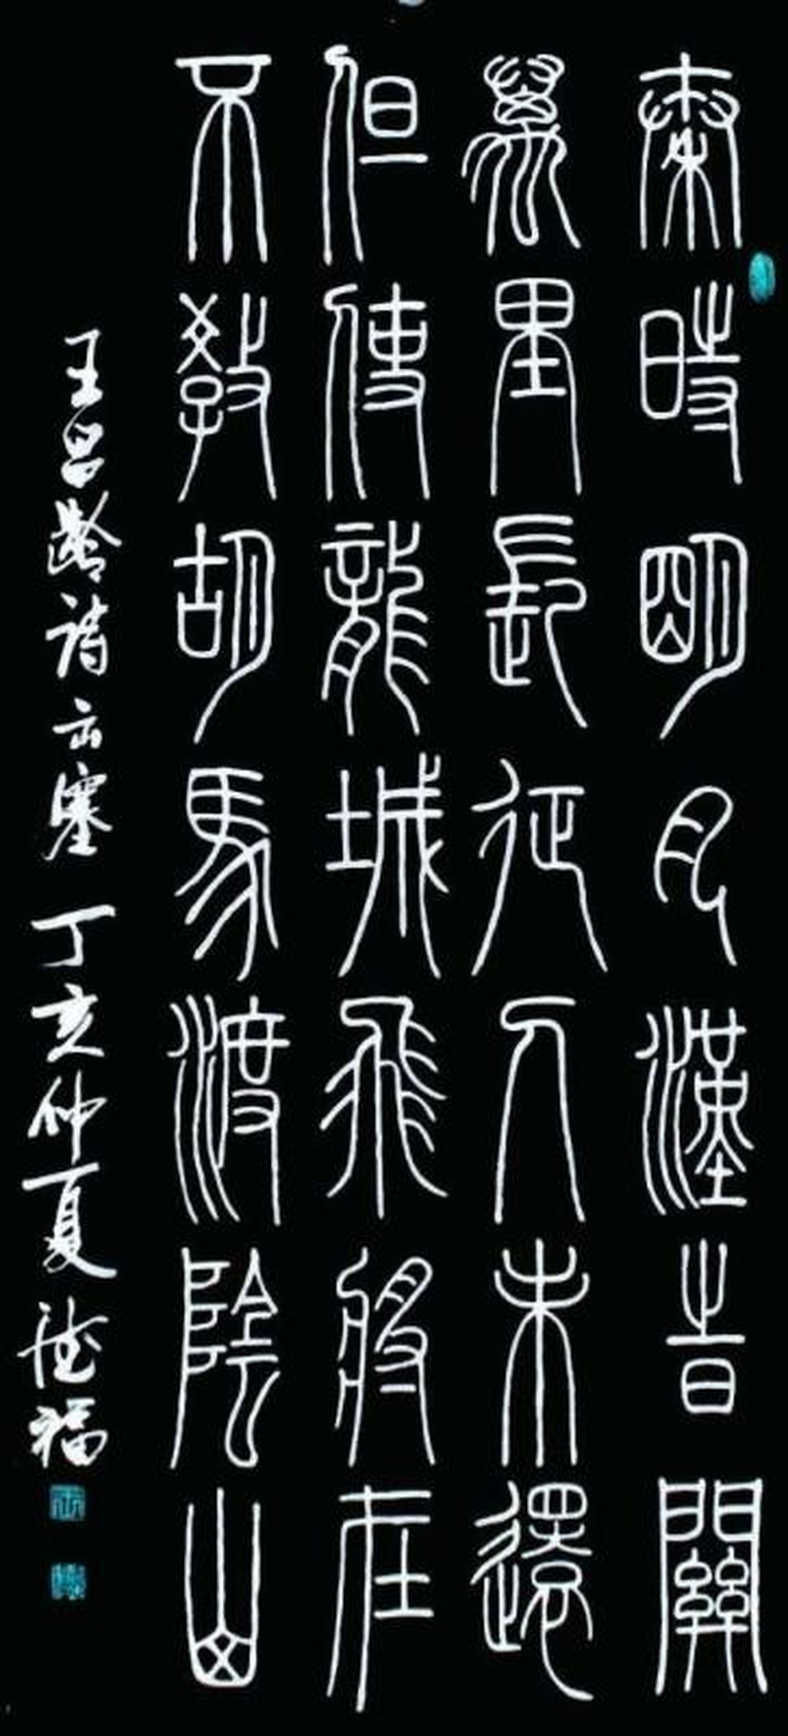 秦時明月漢時關
萬里長征人未還
但使龍城飛將在
不教胡馬渡陰山
王昌齡詩出塞 丁亥仲夏德福